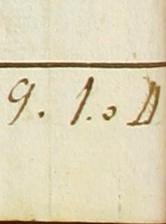 9. 1. 0